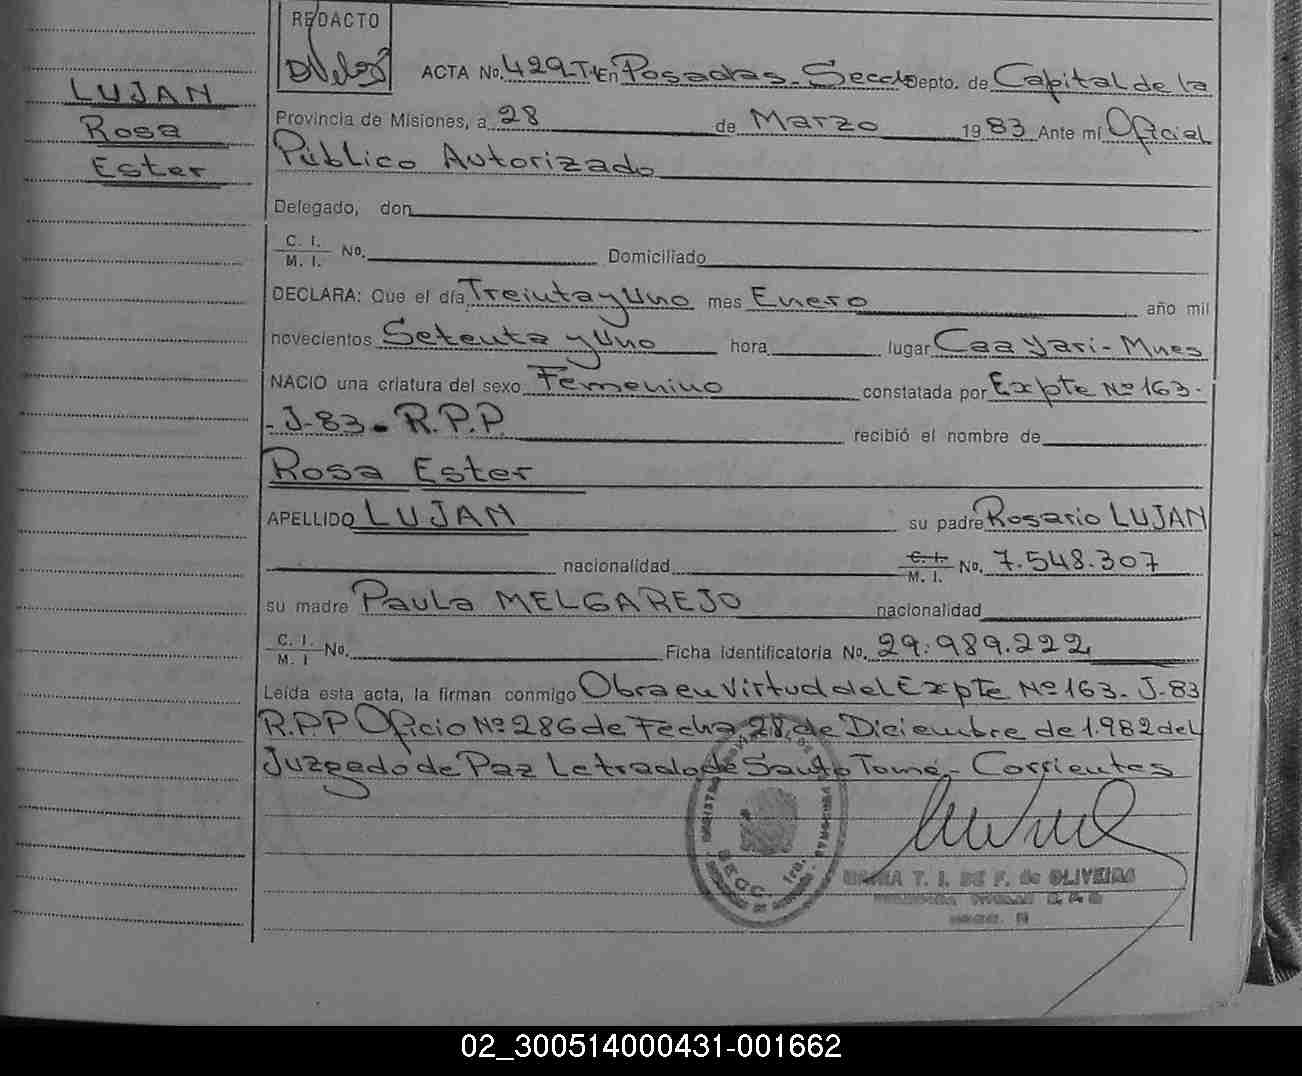 REDACTO
ACTA No. 429-T-I En Posadas - Secc. 1o Depto. de Capital de la
LUJAN
Provincia de Misiones, a 28 de Marzo 1983 Ante mí Oficial
Rosa
Público Autorizado
Ester
Delegado, don
C. I.
M. I. No. Domiciliado
DECLARA: Que el día Treinta y Uno mes Enero año mil
novecientos Setenta y Uno hora lugar Caa Yari - Mnes
NACIO una criatura del sexo Femenino constatada por Expte Nº 163-
- J-83 - R.P.P. recibió el nombre de
Rosa Ester
APELLIDO LUJAN su padre Rosario LUJAN
nacionalidad C. I. M. I. No. 7.548.307
su madre Paula MELGAREJO nacionalidad
C. I.
M. I No. Ficha identificatoria No. 29.989.222
Leída esta acta, la firman conmigo Obra en Virtud del Expte Nº 163-J-83
R.P.P Oficio Nº 286 de Fecha 28 de Diciembre de 1.982 del
Juzgado de Paz Letrado de Santo Tomé - Corrientes
SECC. 1ra.
T. I. DE F. de OLIVEIRA
02_300514000431-001662